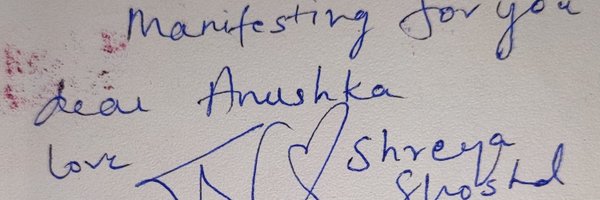 Manifesting for you
dear Anushka
love Shreya
Ghoshal